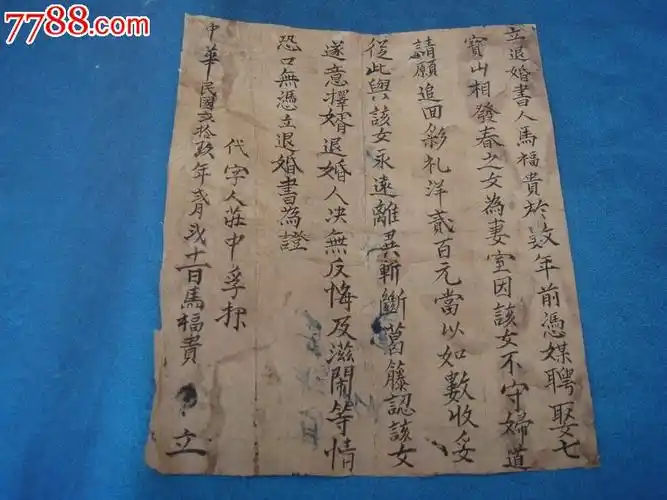 7788.com
立退婚書人馬福貴於数年前憑媒聘娶七
寳山相發春之女為妻室因該女不守婦道
請願追回彩礼洋貳百元當以如數收妥
從此與該女永遠離異斬斷葛籐認該女
遂意擇婿退婚人决無反悔及滋鬧等情
恐口無憑立退婚書為證
代字人莊中孚
中華民國叁拾玖年貳月弍十一日馬福貴 立